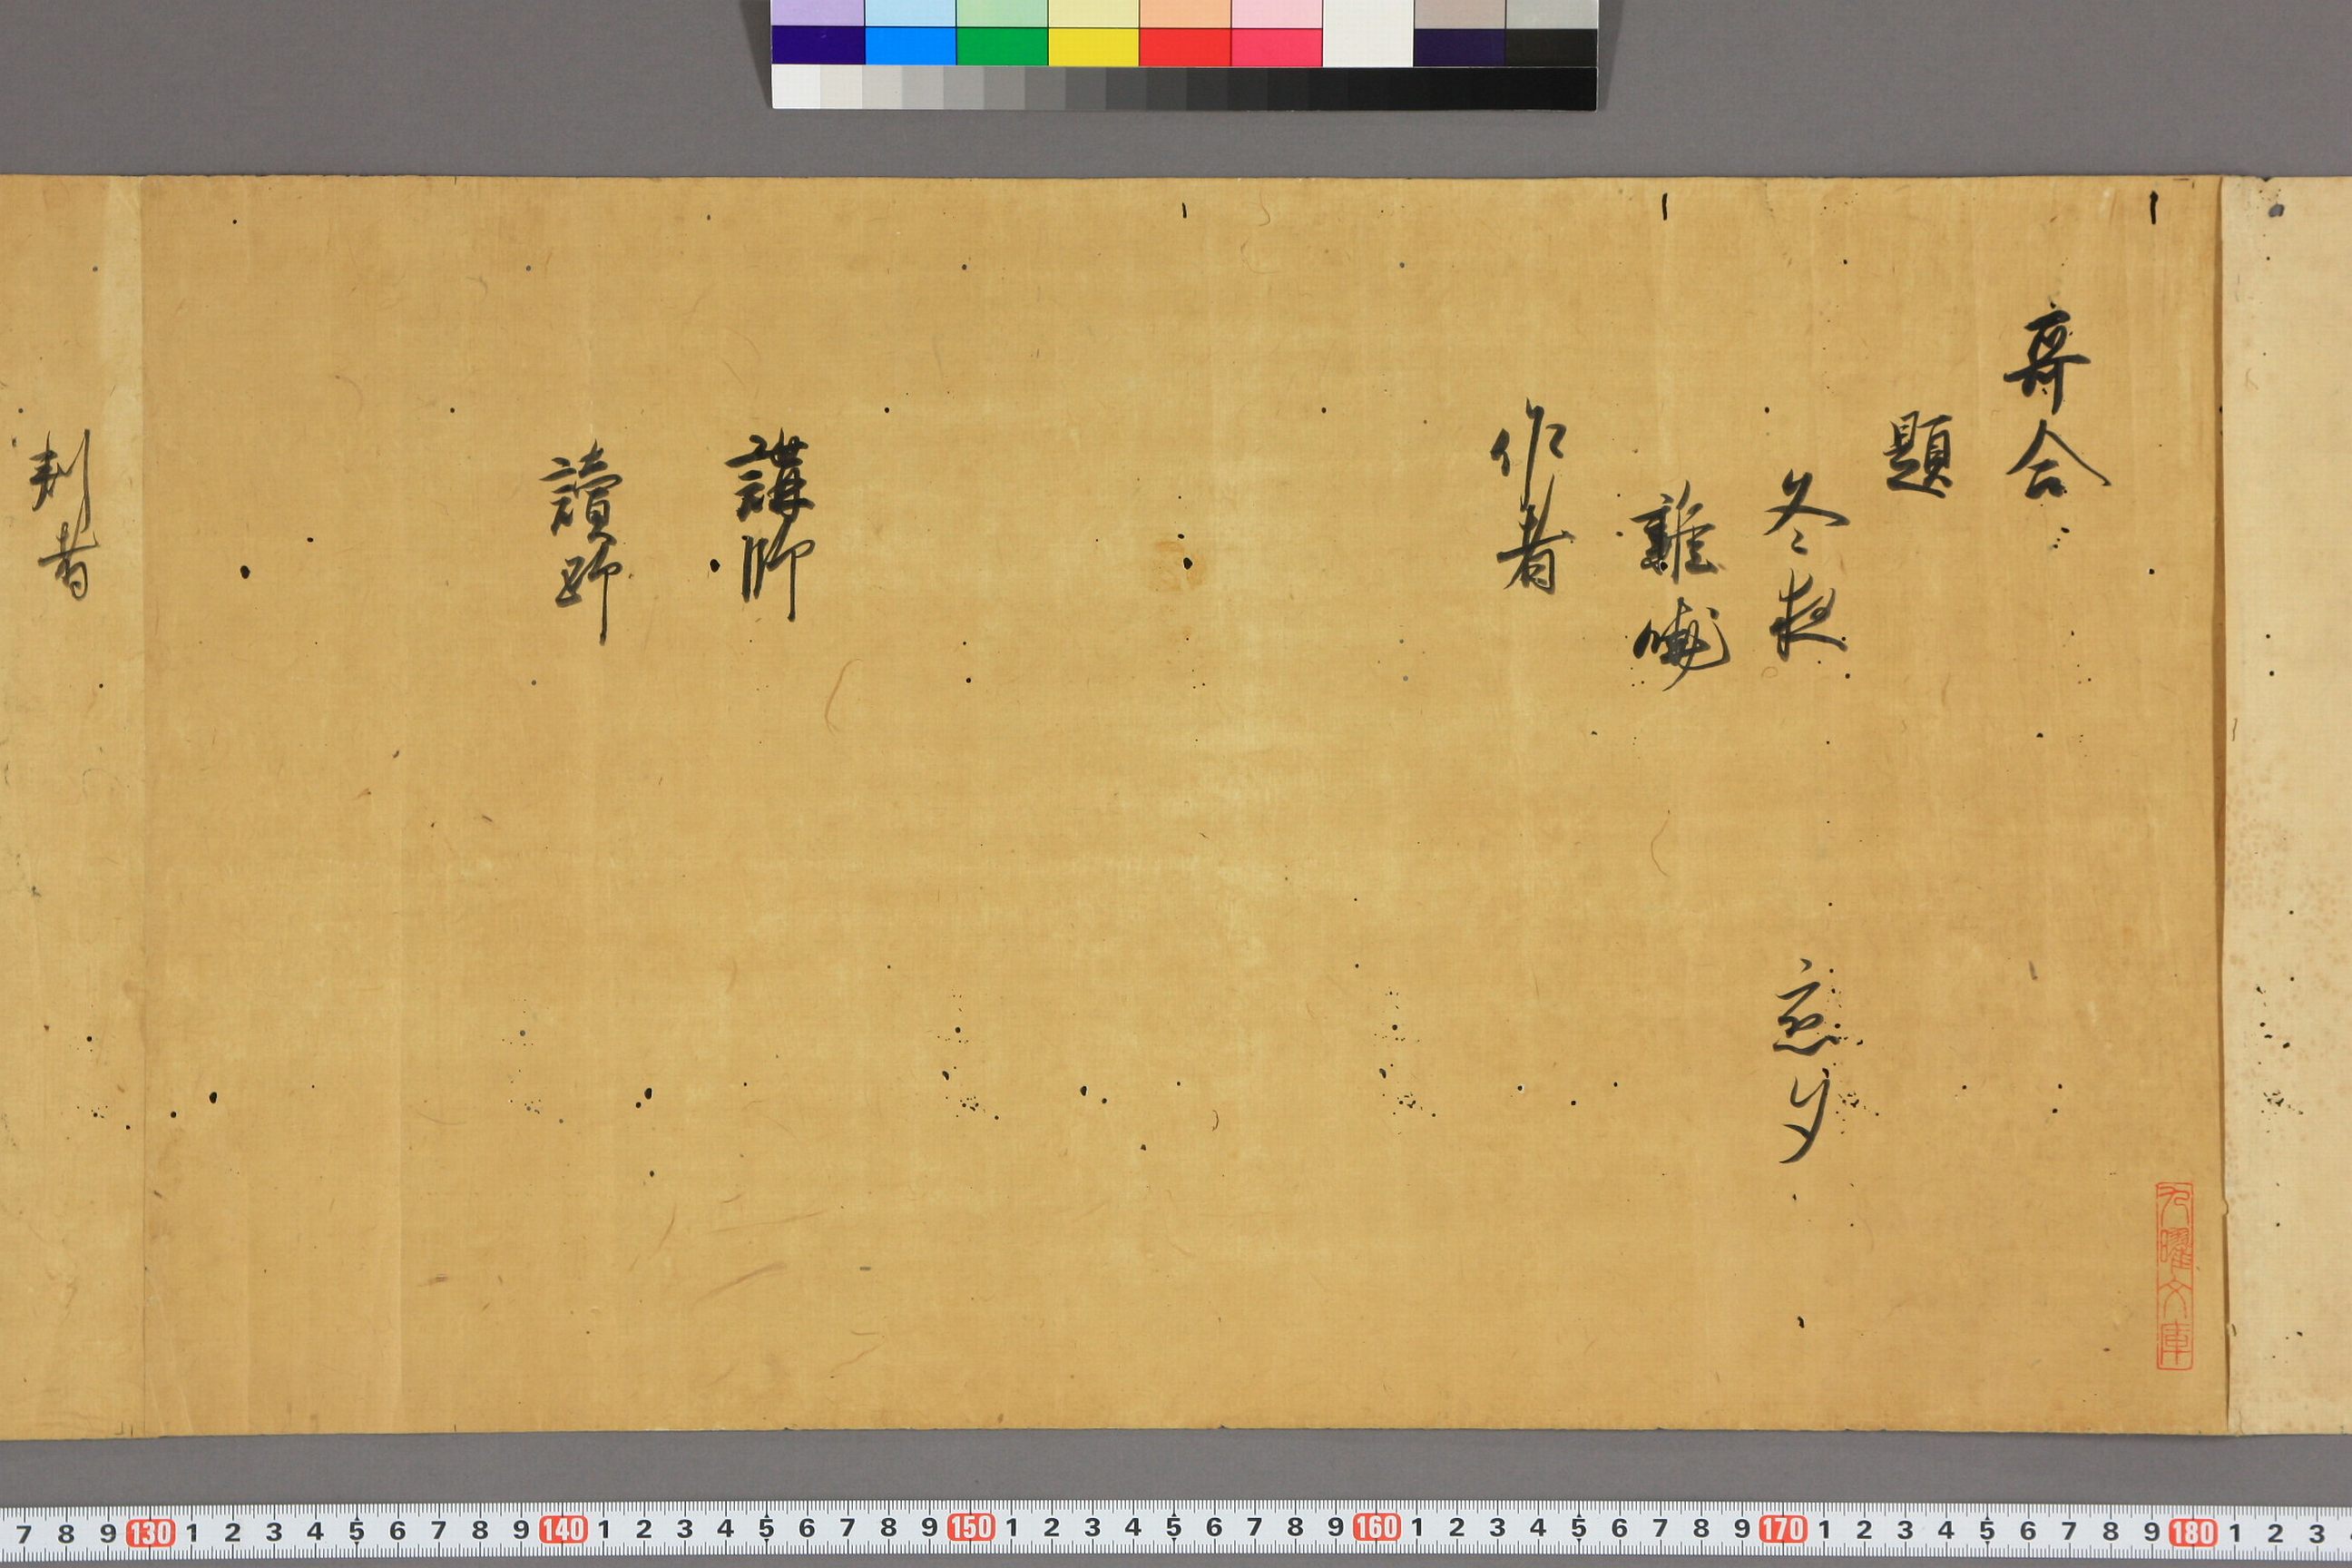 哥合
題
冬夜 恋夕
雜曉
作者
講師
讀師
判者
九曜文庫
7 8 9 130 1 2 3 4 5 6 7 8 9 140 1 2 3 4 5 6 7 8 9 150 1 2 3 4 5 6 7 8 9 160 1 2 3 4 5 6 7 8 9 170 1 2 3 4 5 6 7 8 9 180 1 2 3